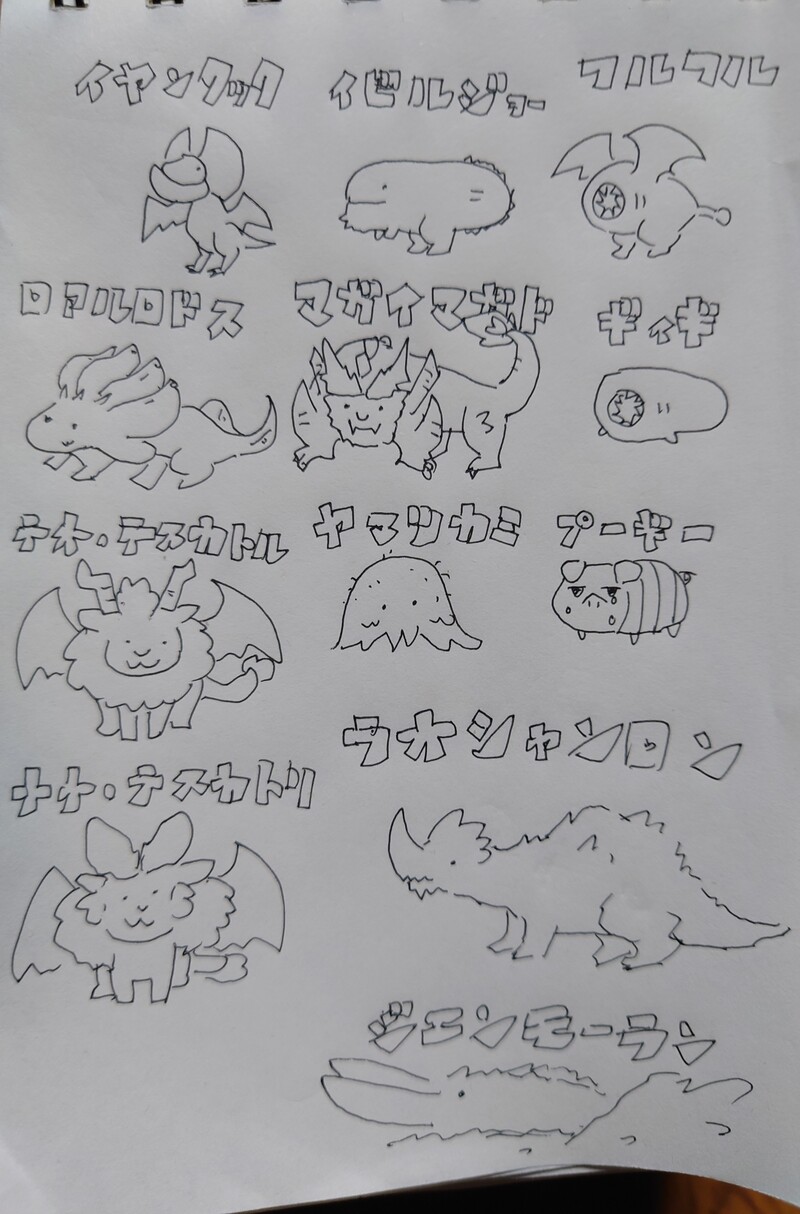 イヤンクック
イビルジョー
フルフル
ロアルドロス
マガイマガド
ギィギ
テオ・テスカトル
ヤマツカミ
プーギー
ラオシャンロン
ナナ・テスカトリ
ジエンモーラン